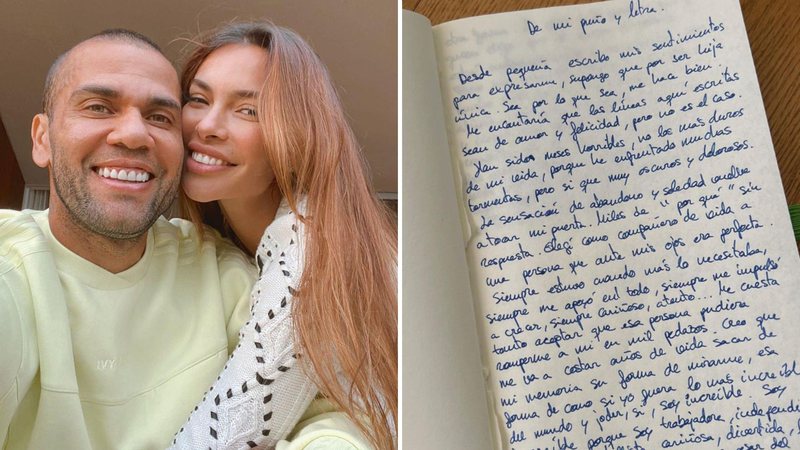 IVY
De mi puño y letra.
Desde pequeña escribo mis sentimientos
para expresarme, supongo que por ser hija
única. Sea por lo que sea, me hace bien.
Me encantaría que las líneas aquí escritas
sean de amor y felicidad, pero no es el caso.
Han sidos meses horribles, no los más duros
de mi vida, porque he enfrentado muchas
tormentas, pero si que muy oscuros y dolorosos.
La sensación de abandono y soledad vuelve
a tocar mi puerta. Miles de "por qué" sin
respuesta. Elegí como compañero de vida a
una persona que ante mis ojos era perfecta.
Siempre estuvo cuando más lo necesitaba,
siempre me apoyó en todo, siempre me impulsó
a crecer, siempre cariñoso, atento... Me cuesta
tanto aceptar que esa persona pudiera
romperme a mi en mil pedazos. Creo que
me va a costar años de vida sacar de
mi memoria su forma de mirarme, esa
forma de como si yo fuera lo más increíbl
del mundo y joder, si, soy increíble. Soy
porque soy trabajadora, independie
cariñosa, divertida,